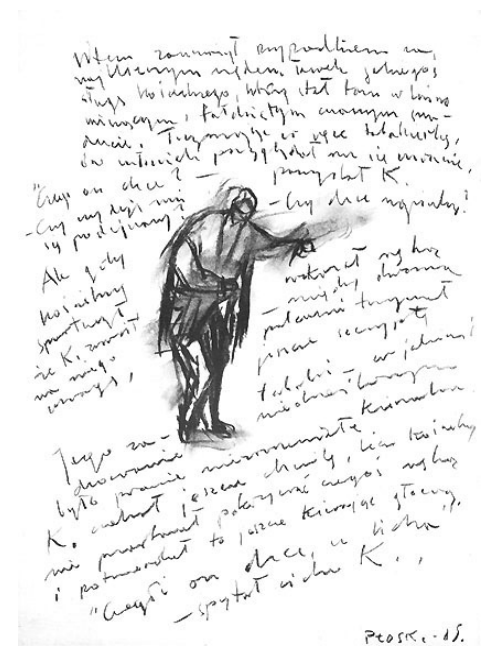 Wtem zauważył przypadkiem
rzędem ławek jakiegoś
sługę kościelnego, który stał tam w luźno
fałdzistym czarnym sur-
ducie. Trzymając w ręce
przyglądał mu się uważnie.
"Czego on chce? – pomyślał K.
– Czy wydaję mu
się podejrzany? – Czy chce napiwku?
Ale gdy
kościelny
spostrzegł
że K. zwrócił
na niego
uwagę,
wskazał ręką
– między dwoma
palcami trzymał
jeszcze szczyptę
tabaki – w jakimś
nieokreślonym
kierunku.
Jego za-
chowanie
było prawie niezrozumiałe.
K. czekał jeszcze chwilę, lecz kościelny
nie przestawał pokazywać czegoś ręką
i potwierdzał to jeszcze kiwając głową.
"Czegóż on chce, u licha",
– spytał cicho K.